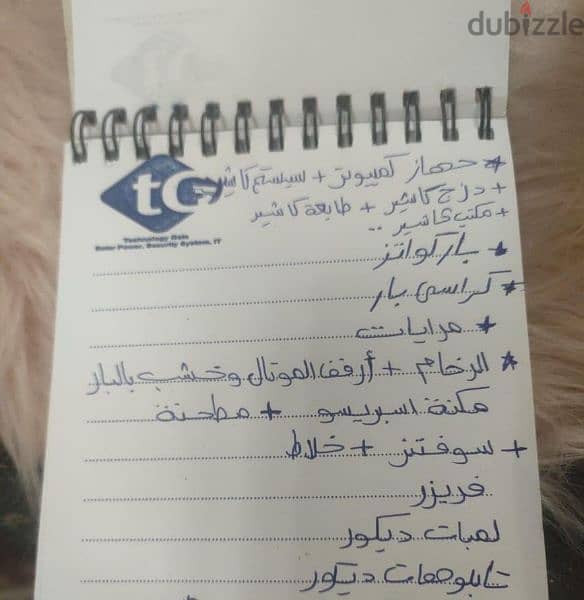 dubizzle
tG
Technology Gate
Solar Power, Security System, IT
* جهاز كمبيوتر + سيستم كاشير
+ درج كاشير + طابعة كاشير
+ مكتب كاشير ..
* بار كواتز
* كراسي بار
* مرايات
* الرخام + أرفف الموتال وخشب بالبار
مكنة اسبريسو + مطحنة
+ سوفتنر + خلاط
فريزر
لمبات ديكور
تابلوهات ديكور